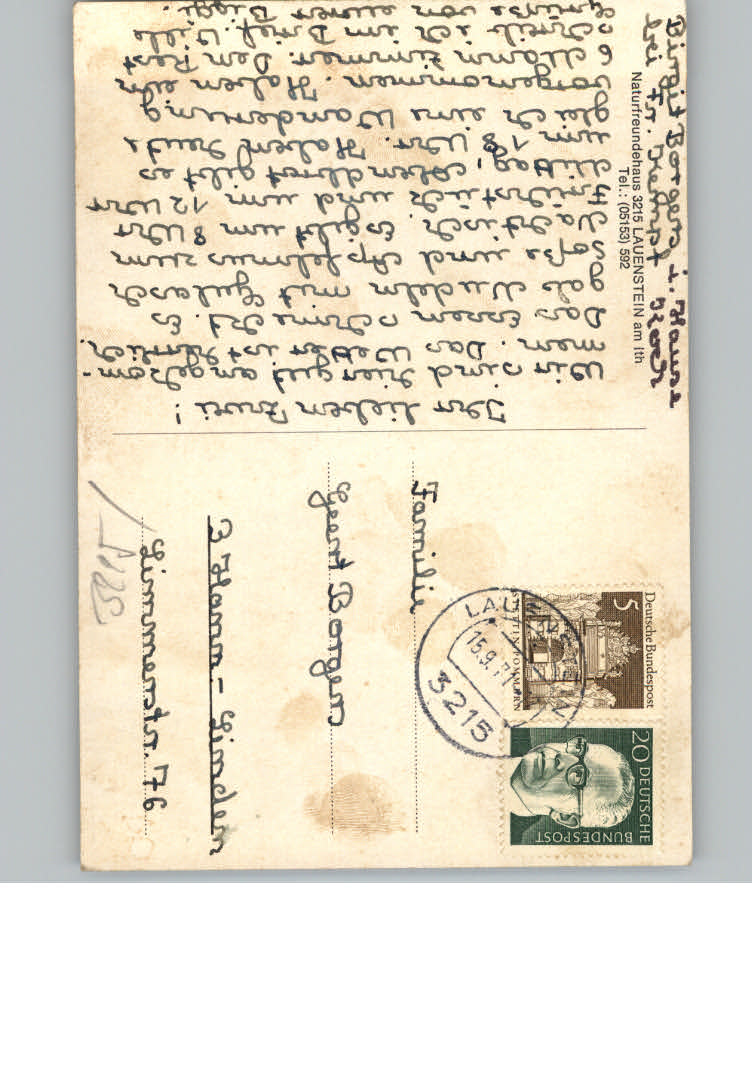 Birgit Borgers i. Hause
bei Fr.
Naturfreundehaus 3215 LAUENSTEIN am Ith
Tel.: (05153) 592
Ihr lieben Zwei!
Wir sind hier gut angekom-
men. Das Wetter ist herrlich.
Das Essen schmeckt. Es
gab Nudeln mit Gulasch
soße und Apfelmus zum
Nachtisch. Es gibt um 8 Uhr
Frühstück und um 12 Uhr
Mittag, Abendbrot gibt es
um 18 Uhr. Haben heute
gleich eine Wanderung
vorgenommen. Haben ein
6 Mann Zimmer. Den Rest
schreib ich im Brief. Viele
Grüße von eurer Biggi.
Familie
Geert Borgers
3 Hann.-Linden
Limmerstr. 76
Deutsche Bundespost
5
STETTIN POMMERN
20 DEUTSCHE
BUNDESPOST
LAUENSTEIN
15.9.71
3215